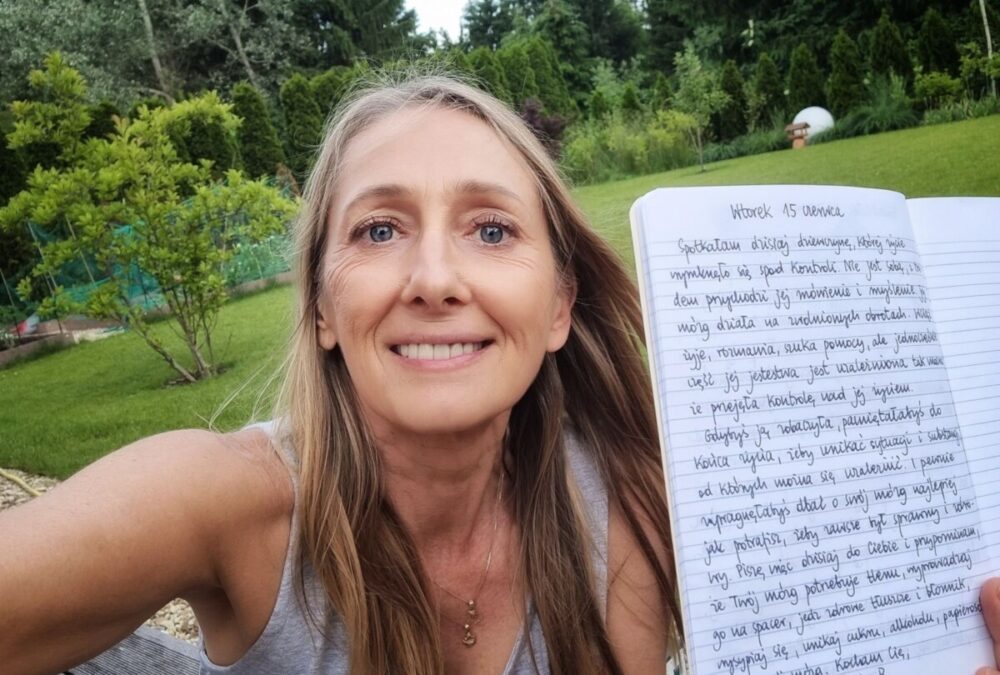 Wtorek 15 czerwca
Spotkałam dzisiaj dziewczynę, której życie
wymknęło się spod kontroli. Nie jest sobą, z tru
dem przychodzi jej mówienie i myślenie, jej
mózg działa na zwolnionych obrotach.
żyje, rozmawia, szuka pomocy, ale jednocześnie
część jej jestestwa jest uzależniona tak mocno
że przejęła kontrolę nad jej życiem.
Gdybyś ją zobaczyła, pamiętałabyś do
końca życia, żeby unikać sytuacji i substancji
od których można się uzależnić. I pewnie
zapragnęłabyś dbać o swój mózg najlepiej
jak potrafisz, żeby zawsze był sprawny i zdro-
wy. Piszę więc dzisiaj do Ciebie i przypominam,
że Twój mózg potrzebuje tlenu, wyprowadzaj
go na spacer, jedz zdrowe tłuszcze i błonnik,
wysypiaj się, unikaj cukru, alkoholu, papierosów
mózg. Kocham Cię,